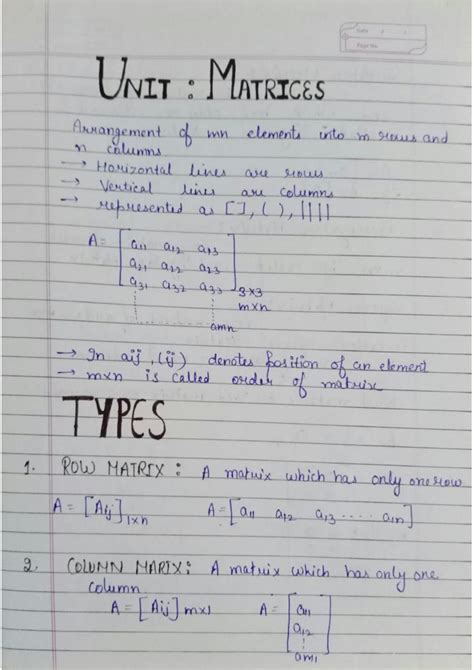 Date / /
Page No.
UNIT : MATRICES
Arrangement of mn elements into m rows and
n columns
→ Horizontal lines are rows
→ Vertical lines are columns
→ represented as [ ], ( ), || ||
A = [ a11 a12 a13
a21 a22 a23
a31 a32 a33 ] 3×3
m×n
amn
→ In aij, (ij) denotes position of an element
→ m×n is called order of matrix
TYPES
1. ROW MATRIX : A matrix which has only one row
A = [Aij] 1×n A = [a11 a12 a13 ..... a1n]
2. COLUMN MARIX : A matrix which has only one
column
A = [Aij] m×1 A = [ a11
a12
⋮
am1